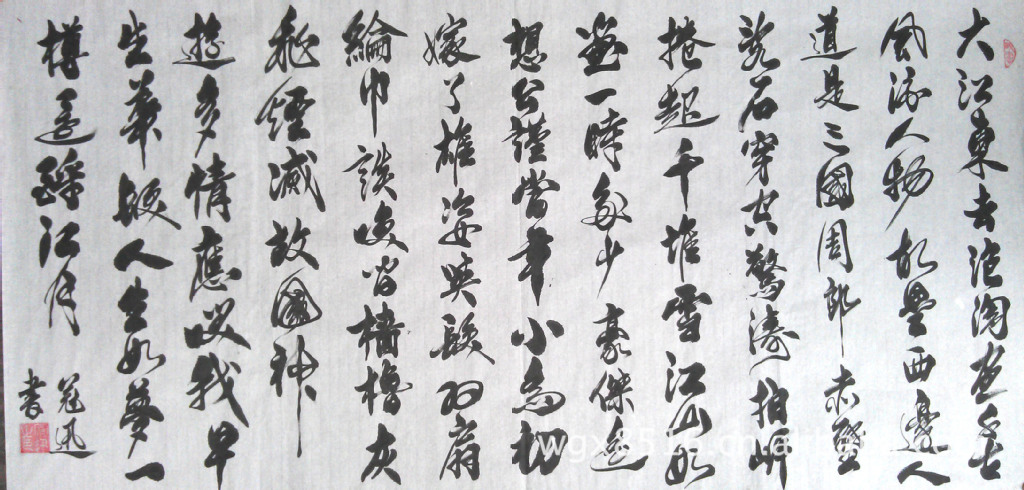 大江東去浪淘盡千古
風流人物故壘西邊人
道是三國周郎赤壁
亂石穿空驚濤拍岸
捲起千堆雪江山如
畫一時多少豪傑遙
想公謹當年小喬初
嫁了雄姿英發羽扇
綸巾談笑間檣櫓灰
飛煙滅故國神
遊多情應笑我早
生華髮人生如夢一
樽還酹江月
冠迅
書